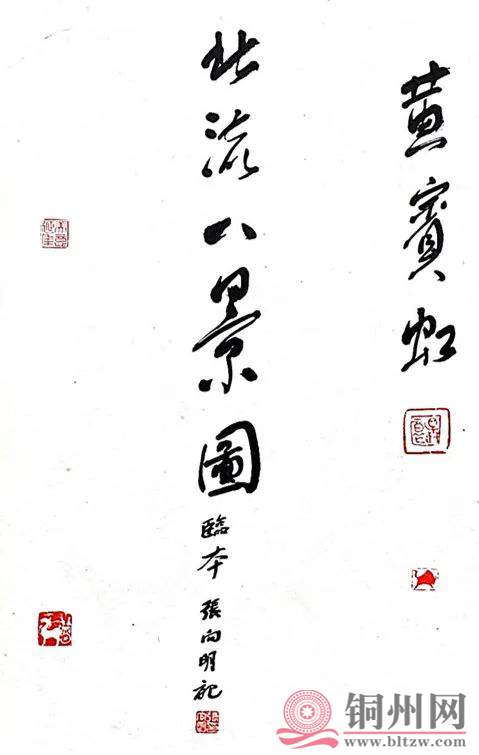 黄賓虹
北流八景圖
臨本 張向明記
铜州网
www.bltzw.com